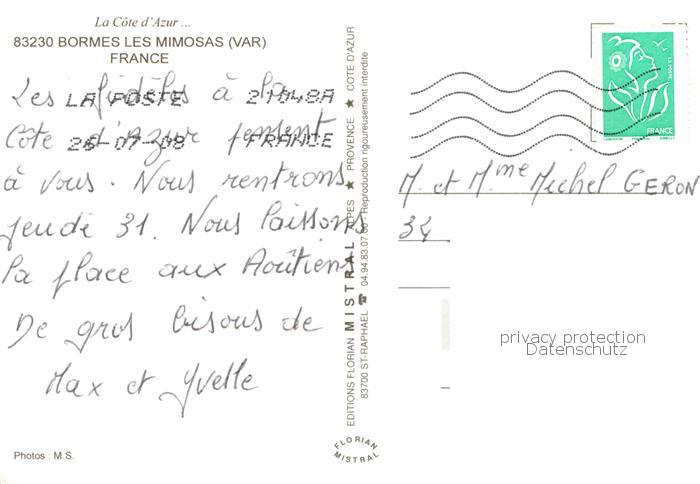 La Côte d'Azur ...
83230 BORMES LES MIMOSAS (VAR)
FRANCE
Les fidèles à la
Côte d'Azur pensent
à vous. Nous rentrons
jeudi 31. Nous laissons
la place aux Aoûtiens
De gros bisous de
Max et Yvette
LA POSTE 21148A
26-07-08 FRANCE
Photos : M.S.
EDITIONS FLORIAN MISTRAL ALPES ★ PROVENCE ★ COTE D'AZUR
83700 ST-RAPHAEL ☎ 04.94.83.07.00 - Reproduction rigoureusement interdite
FLORIAN
MISTRAL
LA POSTE
FRANCE
M. et Mme Michel GERON
34
privacy protection
Datenschutz